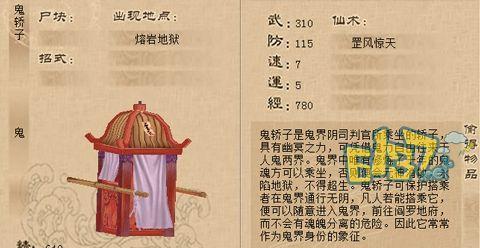 鬼轿子
尸块:
出现地点:
熔岩地狱
招式:
鬼
武: 310
仙术:
防: 115
罡风惊天
速: 7
运: 5
經: 780
偷得物品
鬼轿子是鬼界阴司判官所乘坐的轿子，
具有幽冥之力，可凭借鬼力自由往来
人鬼两界。鬼界中唯有年的鬼
魂方可以乘坐，否
陷地狱，不得超生。鬼轿子可保护搭乘
者在鬼界通行无阴，凡人若能搭乘它，
便可以随意进入鬼界，前往阎罗地府，
而不会有魂魄分离的危险。因此它常常
作为鬼界身份的象征。